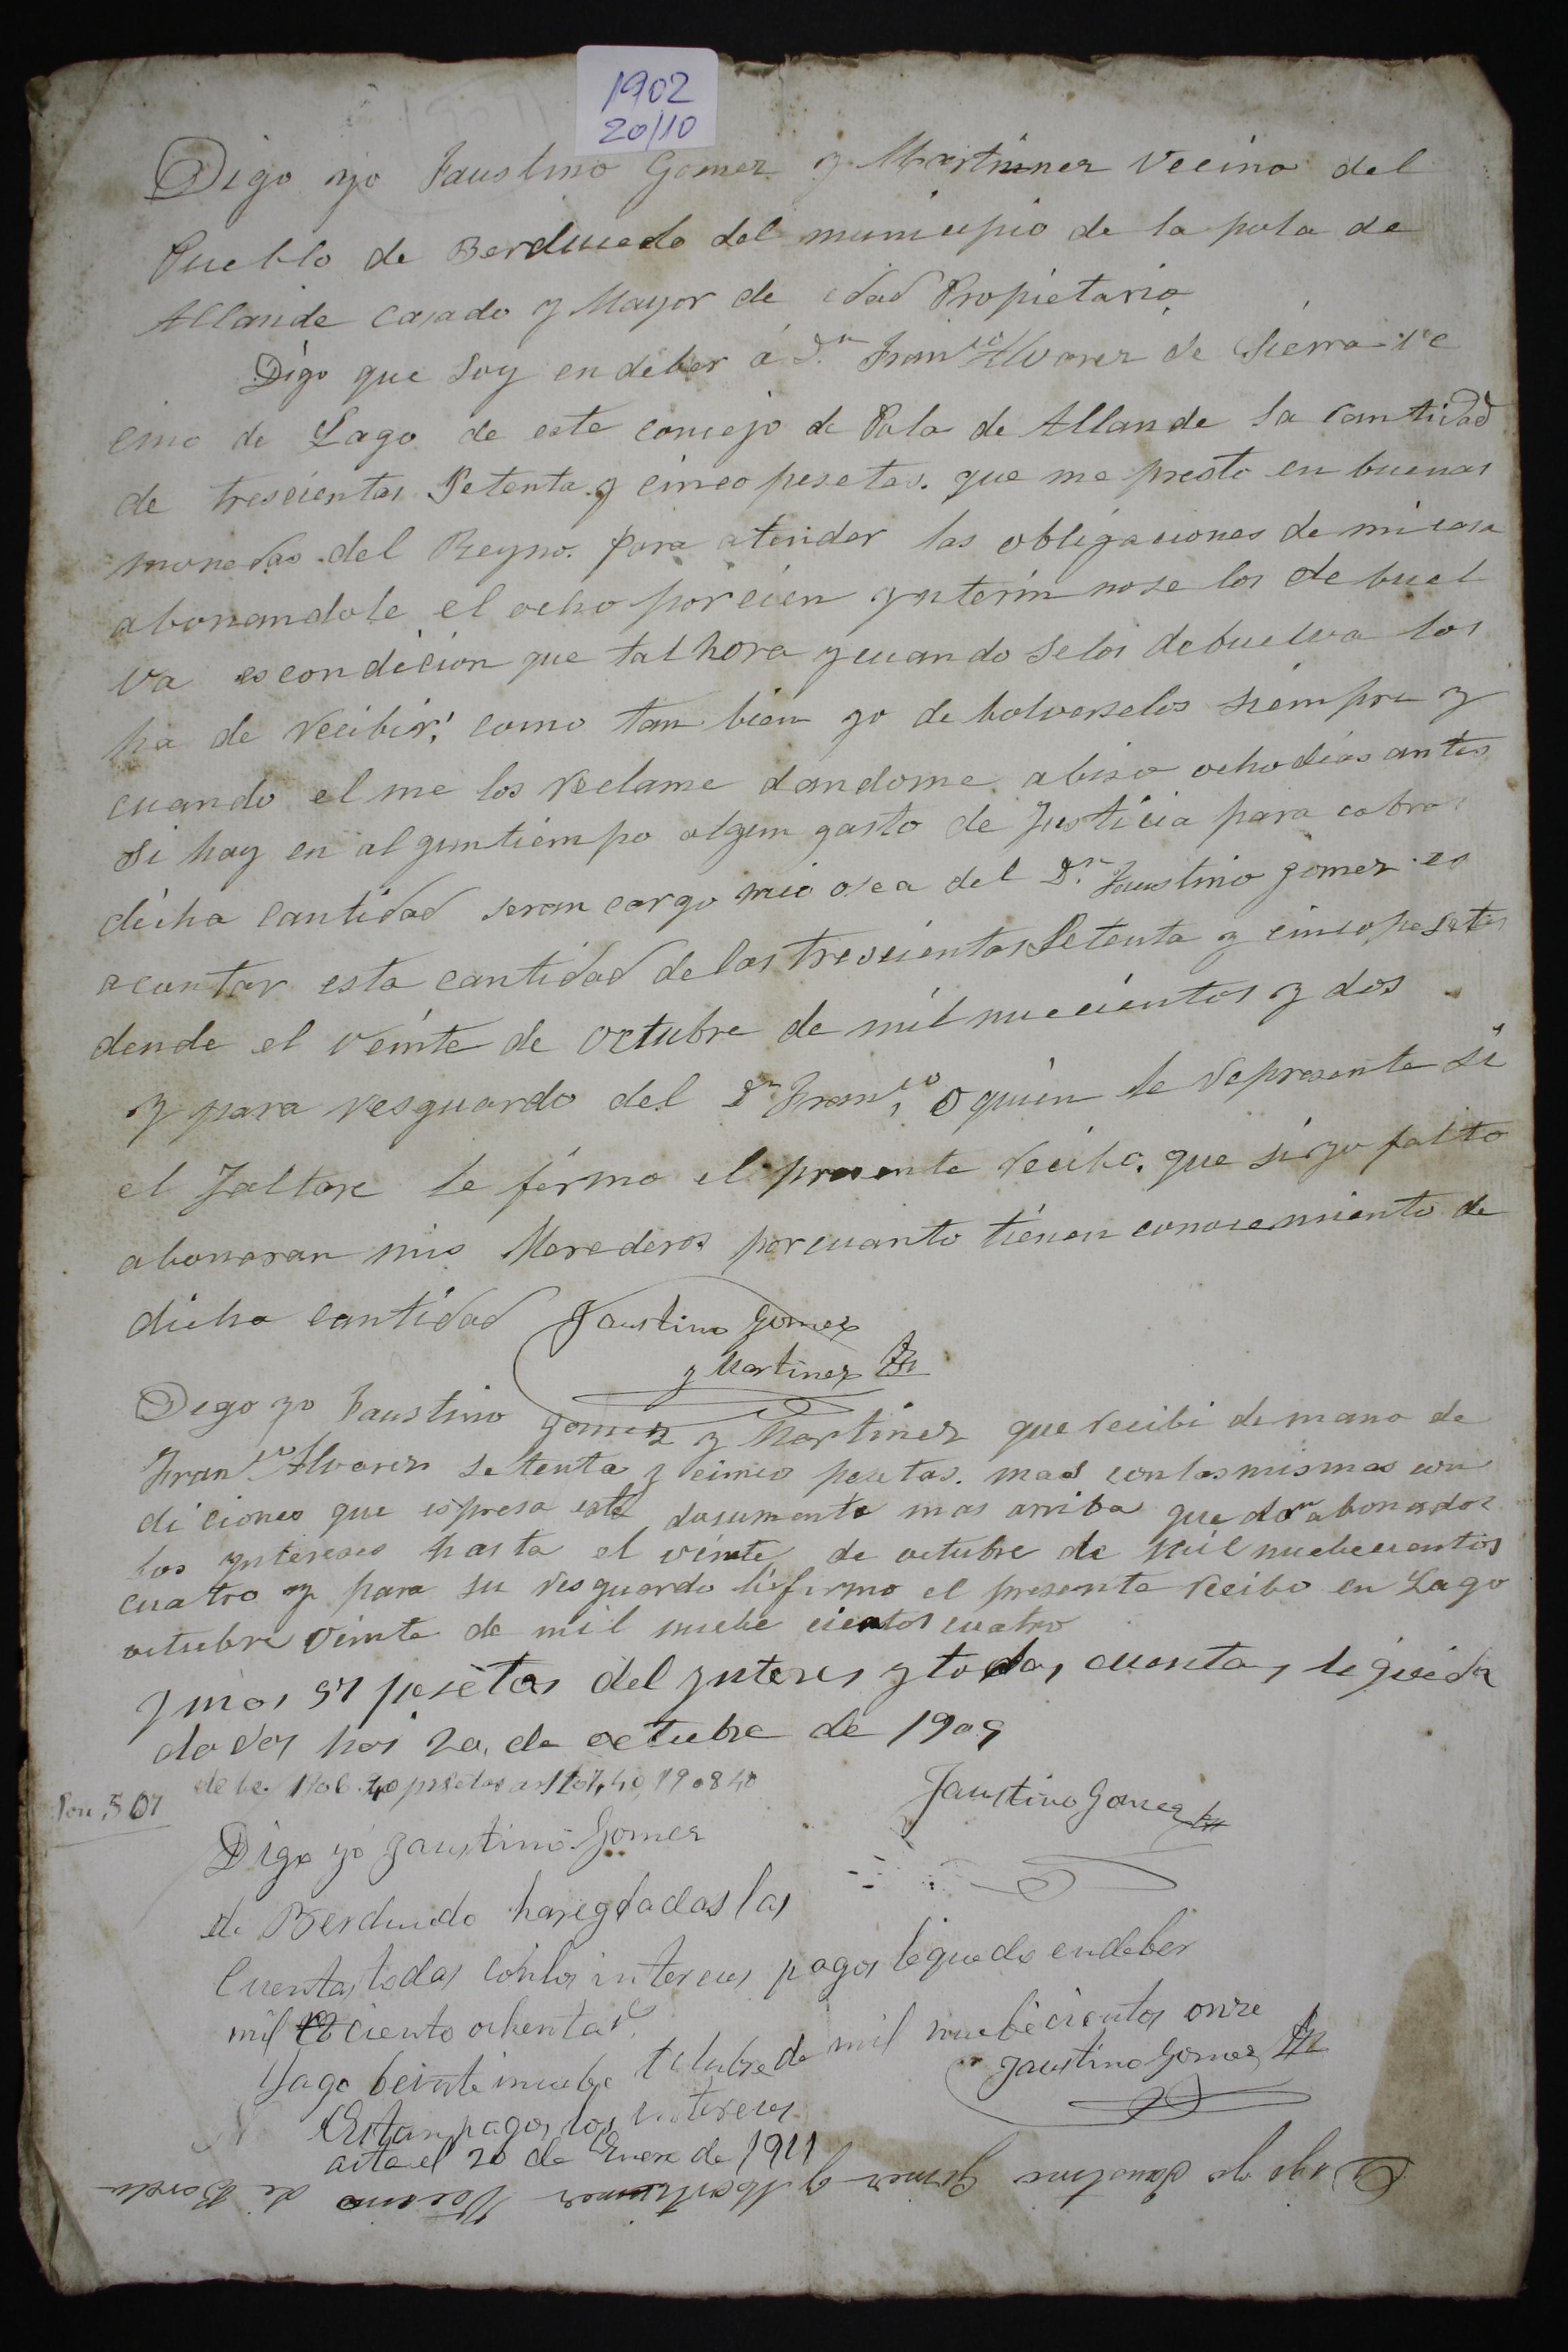 1902
20/10
Digo yo Faustino Gomez y Martinnez Vecino del
Pueblo de Berducedo del municipio de la pola de
Allande casado y Mayor de edad Propietario
Digo que soy en deber á Dn Franco Alvarez de Sierra ve
cino de Lago de este concejo de Pola de Allande la cantidad
de trescientas Setenta y cinco pesetas. que me presto en buenas
monedas del Reyno. para atender las obligaciones de mi casa
abonandole el ocho por cien ynterin no se los debuel
va es condicion que tal hora y cuando se los debuelva los
ha de recibir; como tan bien yo de bolverselos siempre y
cuando el me los reclame dandome abiso ocho dias antes
Si hay en algun tiempo algun gasto de Justicia para cobrar
dicha cantidad seran cargo mio osea del Dn Faustino gomez es
acontar esta cantidad de las trescientas Setenta y cinco pesetas
dende el veinte de octubre de mil nuecientos y dos
y para resguardo del Dn Franco, o quien le represente si
el faltare le firmo el presente recibo. que si yo falto
abonaran mis Herederos por cuanto tienen conosemiento de
dicha cantidad Faustino Gomez
y Martinez
Digo yo Faustino gomez y Martinez que recibi de mano de
Franco Alvarez setenta y cinco pesetas. mas con las mismas con
diciones que espresa este documento mas arriba quedan abonados
los yntereses hasta el veinte de octubre de mil nuebecientos
cuatro y para su resguardo le firmo el presente recibo en Lago
octubre veinte de mil nuebe cientos cuatro
y mas 57 pesetas del ynteres y todas cuentas liquida
dadas hoi 20, de octubre de 1909
debe 1906 40 pesetas 1908 40
507
Faustino Gomez
Digo yo Faustino Gomez
de Berducedo haregladas las
Cuentas todas con los intereses pagos le quedo en deber
mil ciento ochenta r.
Lago beintinuebe de mil nuebecientos onze
Faustino Gomez
Estan pagos los intereses
asta el 20 de Enero de 1911
Digo yo Faustino Gomez y Martinnez Vecino de Berdu